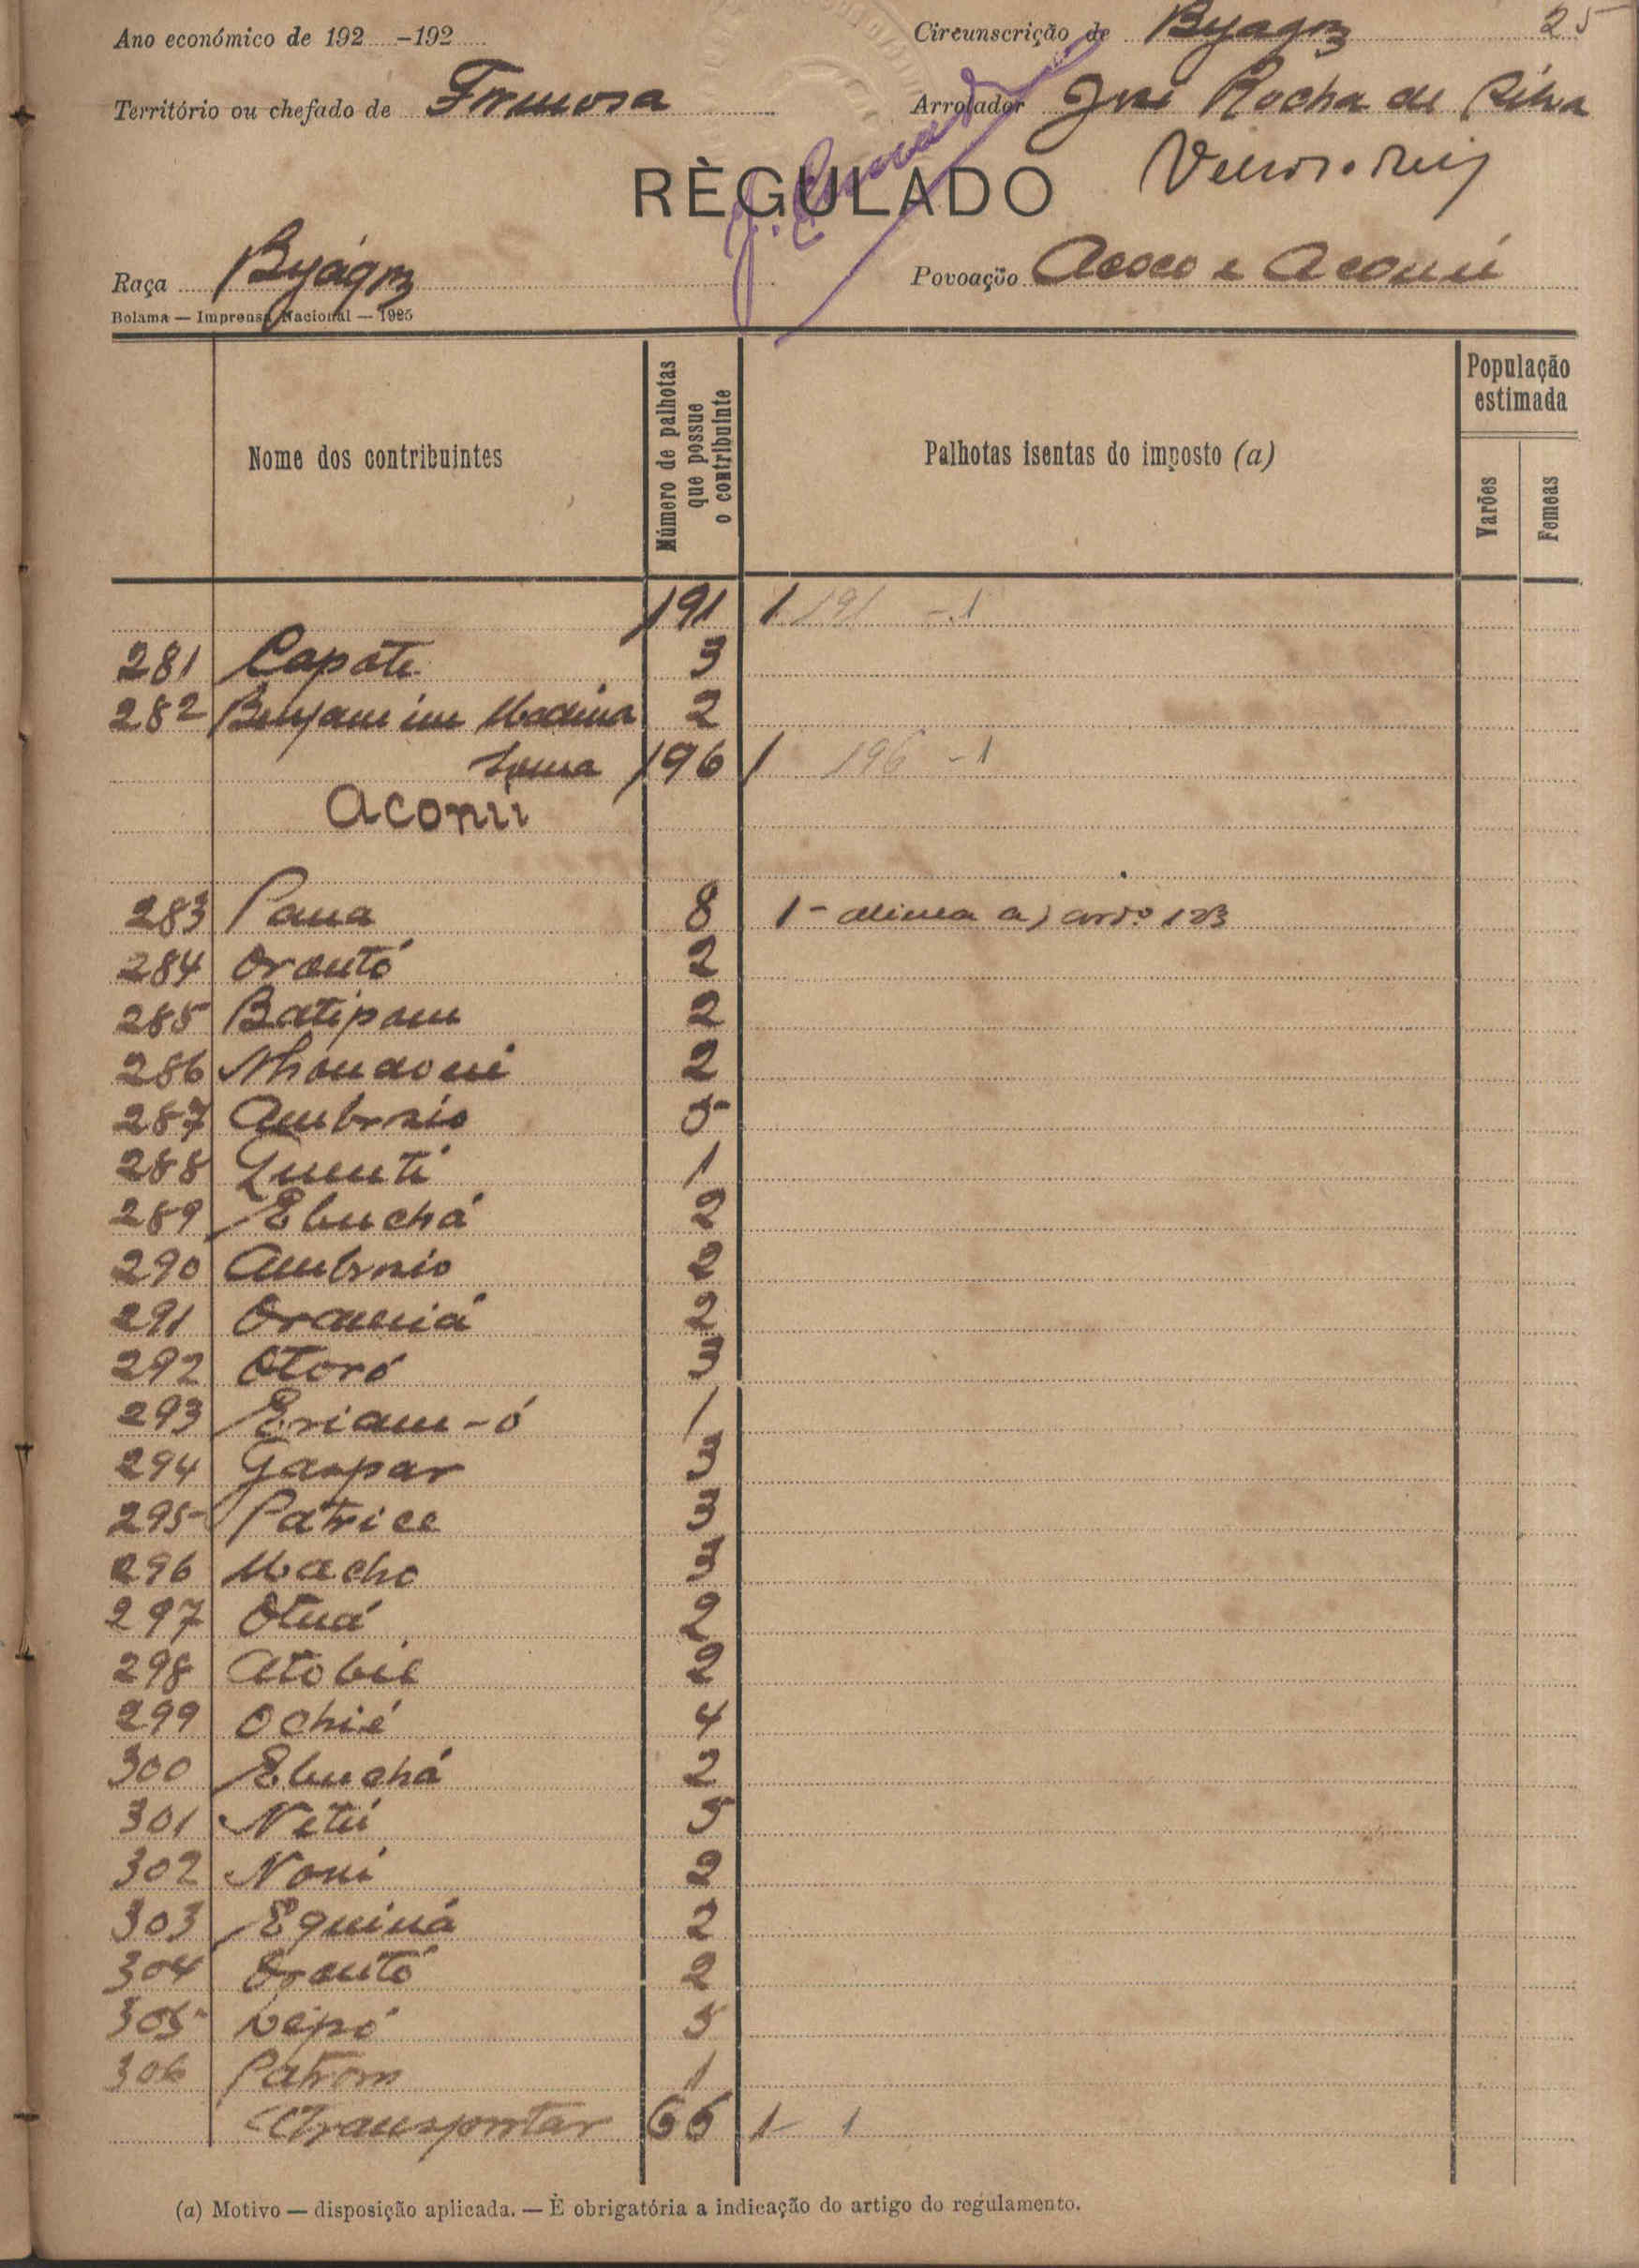 Ano económico de 192 -192
Circunscrição de Byagoz 25
Território ou chefado de Formosa
Arrolador José Rocha da Silva
REGULADO
Raça Byágoz
Povoação Acoco e Aconú
Bolama — Imprensa Nacional — 1925
Nome dos contribuintes
Número de palhotas que possue o contribuinte
Palhotas isentas do imposto (a)
População estimada
Varões
Femeas
191 1 191 - 1
281 Capote 3
282 Benjamim Madina 2
Soma 196 1 196 - 1
Aconú
283 Pana 8 1 - alinea a) artº 123
284 Orantó 2
285 Batipam 2
286 Nhonaoni 2
287 Ambrosio 5
288 Quenti 1
289 Ebuchá 2
290 Ambrosio 2
291 Oramiá 2
292 Otoró 3
293 Eriam-ó 1
294 Gaspar 3
295 Patrice 3
296 Macho 3
297 Otuá 2
298 Atobie 2
299 Ochié 4
300 Ebuchá 2
301 Netú 5
302 Noni 2
303 Equiná 2
304 Orantó 2
305 Depó 5
306 Patrom 1
A transportar 66 1 - 1
(a) Motivo — disposição aplicada. — É obrigatória a indicação do artigo do regulamento.